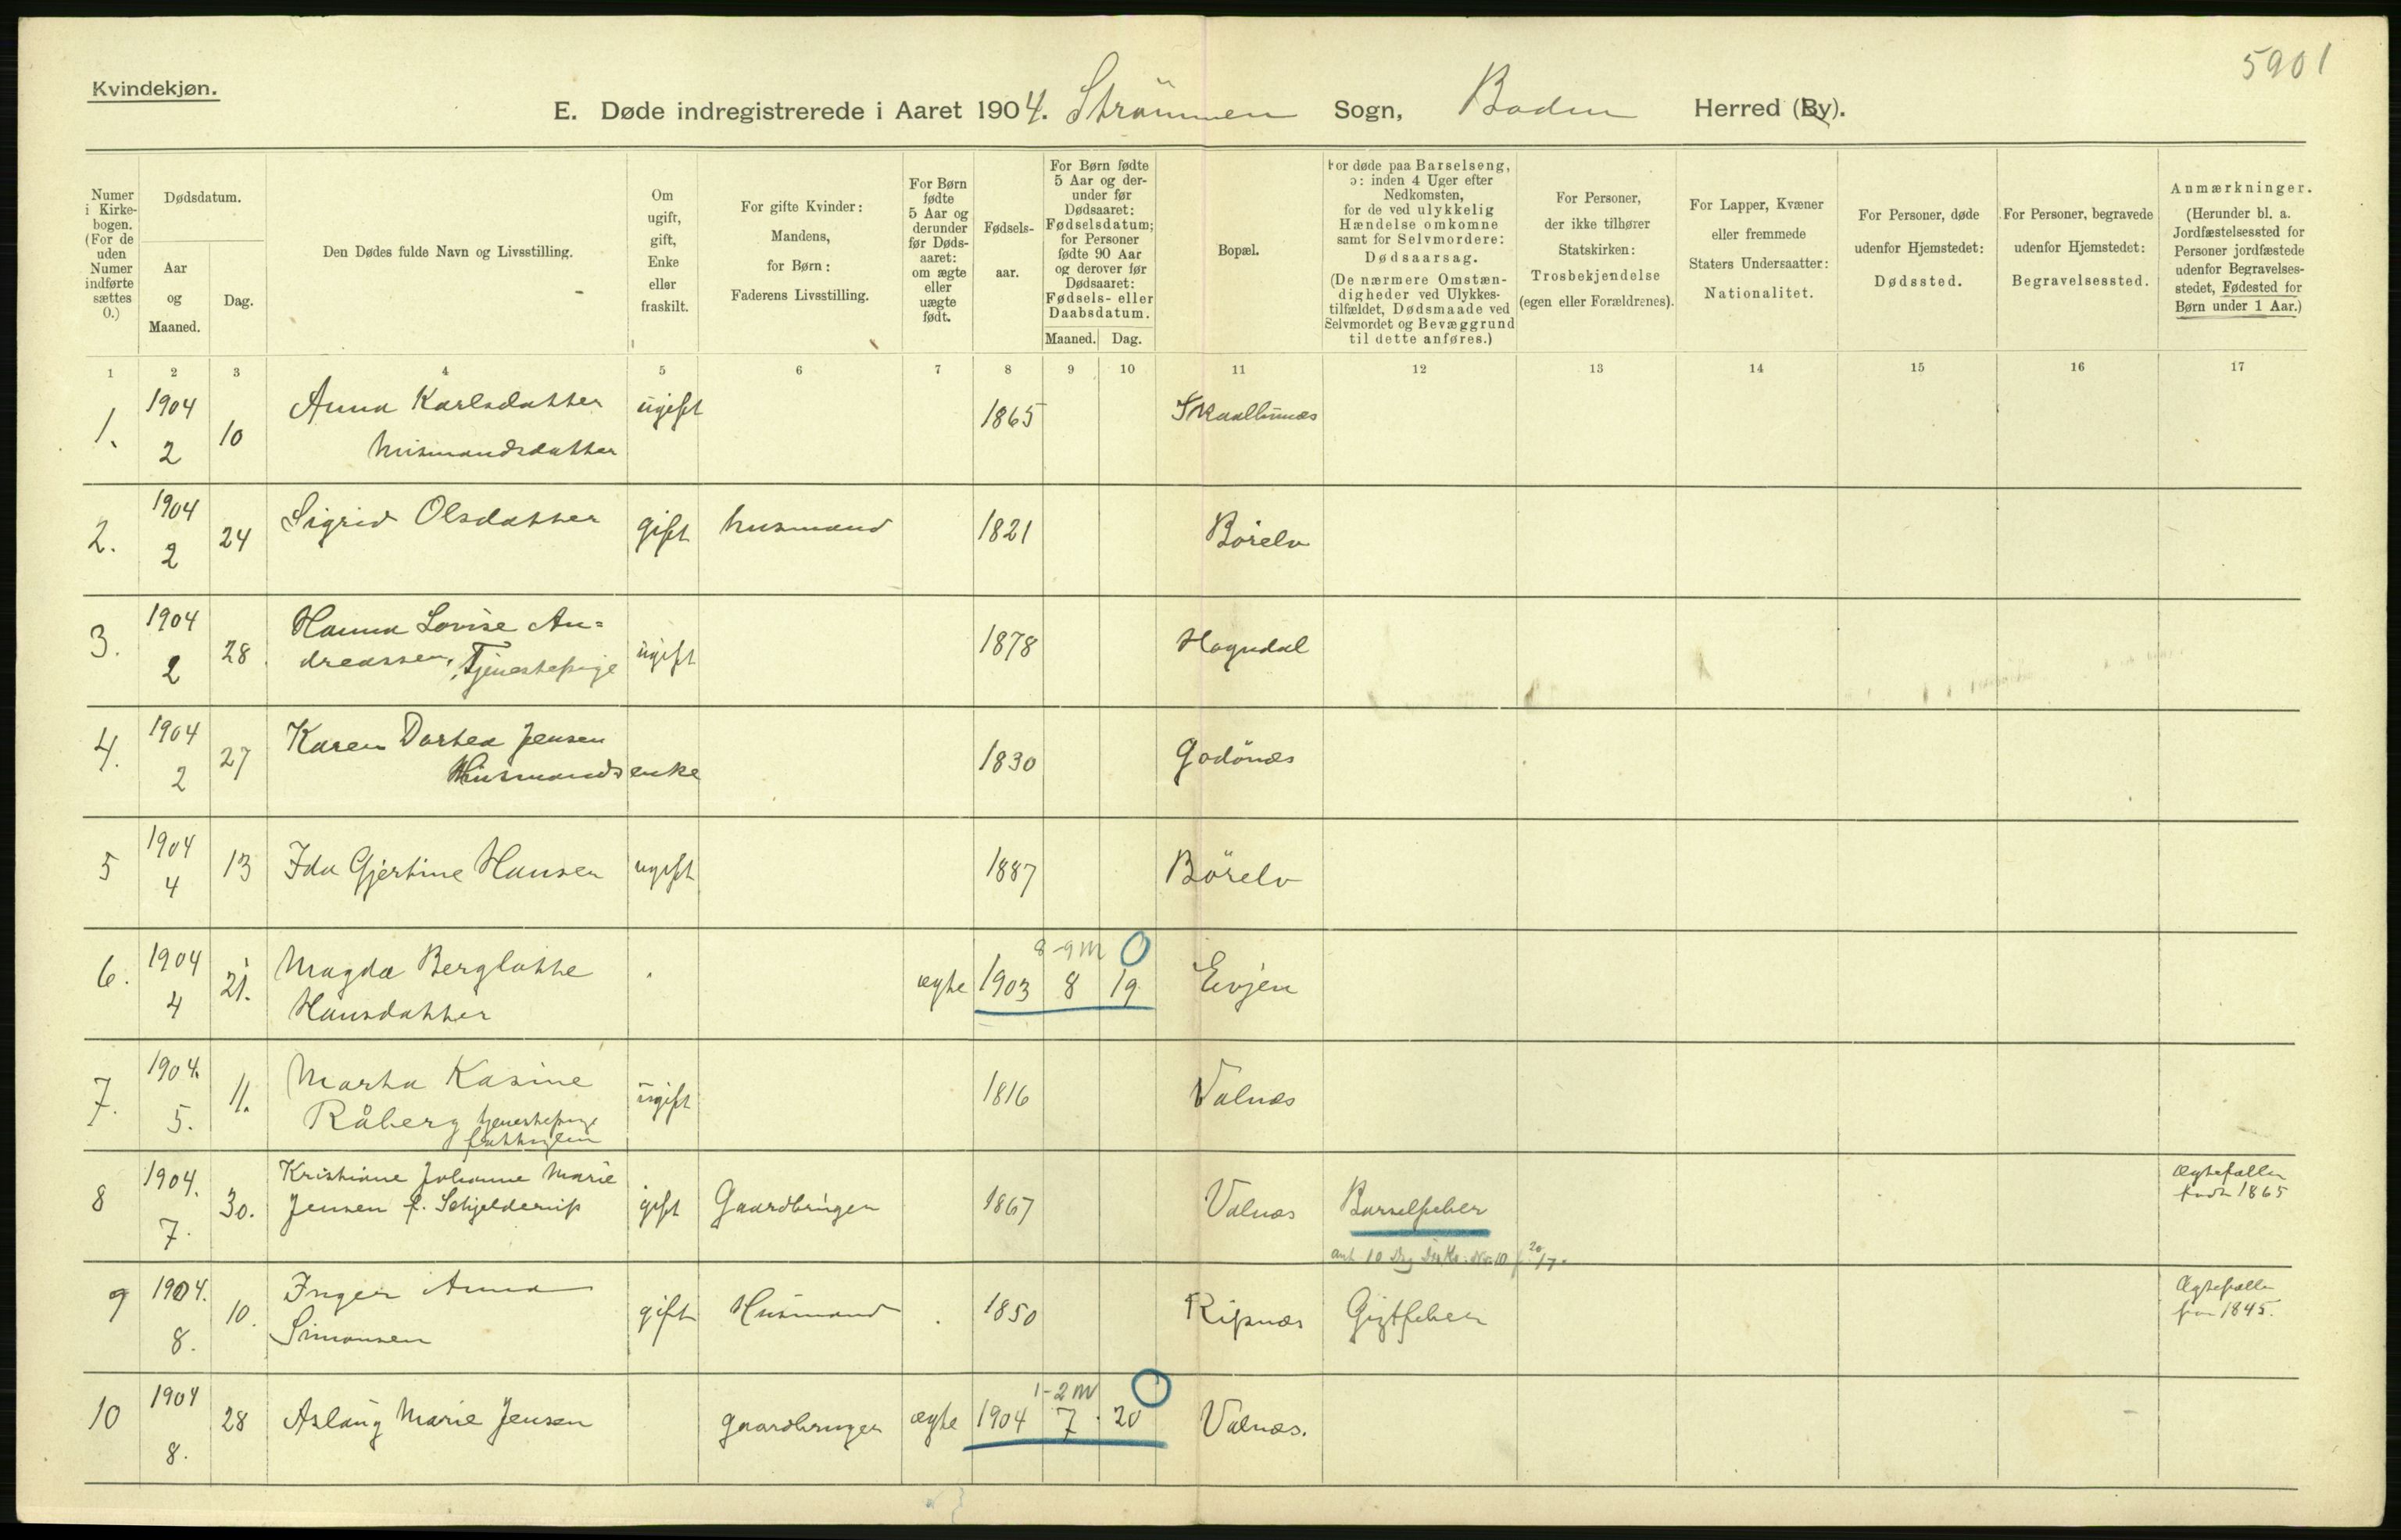 5901
Kvindekjøn.
E. Døde indregistrerede i Aaret 1904. Strömmen Sogn, Bodin Herred (By).
Numer i Kirke-bogen. (For de uden Numer indførte sættes 0.)
Dødsdatum.
Aar og Maaned.
Dag.
Den Dødes fulde Navn og Livsstilling.
Om ugift, gift, Enke eller fraskilt.
For gifte Kvinder: Mandens, for Børn: Faderens Livsstilling.
For Børn fødte 5 Aar og derunder før Døds-aaret: om ægte eller uægte født.
Fødsels-aar.
For Børn fødte 5 Aar og der-under før Dødsaaret: Fødselsdatum; for Personer fødte 90 Aar og derover før Dødsaaret: Fødsels- eller Daabsdatum.
Maaned. Dag.
Bopæl.
For døde paa Barselseng, ɔ: inden 4 Uger efter Nedkomsten, for de ved ulykkelig Hændelse omkomne samt for Selvmordere: Dødsaarsag. (De nærmere Omstæn-digheder ved Ulykkes-tilfældet, Dødsmaade ved Selvmordet og Bevæggrund til dette anføres.)
For Personer, der ikke tilhører Statskirken: Trosbekjendelse (egen eller Forældrenes).
For Lapper, Kvæner eller fremmede Staters Undersaatter: Nationalitet.
For Personer, døde udenfor Hjemstedet: Dødssted.
For Personer, begravede udenfor Hjemstedet: Begravelsessted.
Anmærkninger. (Herunder bl. a. Jordfæstelsessted for Personer jordfæstede udenfor Begravelses-stedet, Fødested for Børn under 1 Aar.)
1 2 3 4 5 6 7 8 9 10 11 12 13 14 15 16 17
1. 1904 2 10 Anna Karlsdatter ugift 1865
husmandsdatter
2. 1904 2 24 Sigrid Olsdatter gift husmand 1821 Börelv
3. 1904 2 28. Hanna Lovise An=
dreassen, Tjenestepige ugift 1878 Hogndal
4. 1904 2 27 Karen Dortea Jensen 1830 Godönes
Husmands enke
5 1904 4 13 Ida Gjertine Hansen ugift 1887 Börelv
8-9 M O
6. 1904 4 21. Magda Berglotte ægte 1903 8 19. Evjen
Hansdatter
7. 1904. 5. 11. Marta Kasine ugift 1816 Valnes
Råberg tjenestepige
fattiglem
8 1904. 7. 30. Kristiane Johanne Marie
Jensen f. Schjelderup gift Gaardbruger 1867 Valnæs Barselfeber
Ægtefællen
född 1865
9 1904. 8. 10. Inger Anna
Simonsen gift Husmand 1850 Ripnæs Gigtfeber
Ægtefællen
1845.
1-2 M O
10 1904 8. 28 Aslaug Marie Jensen gaardbruger ægte 1904 7. 20 Valnæs.